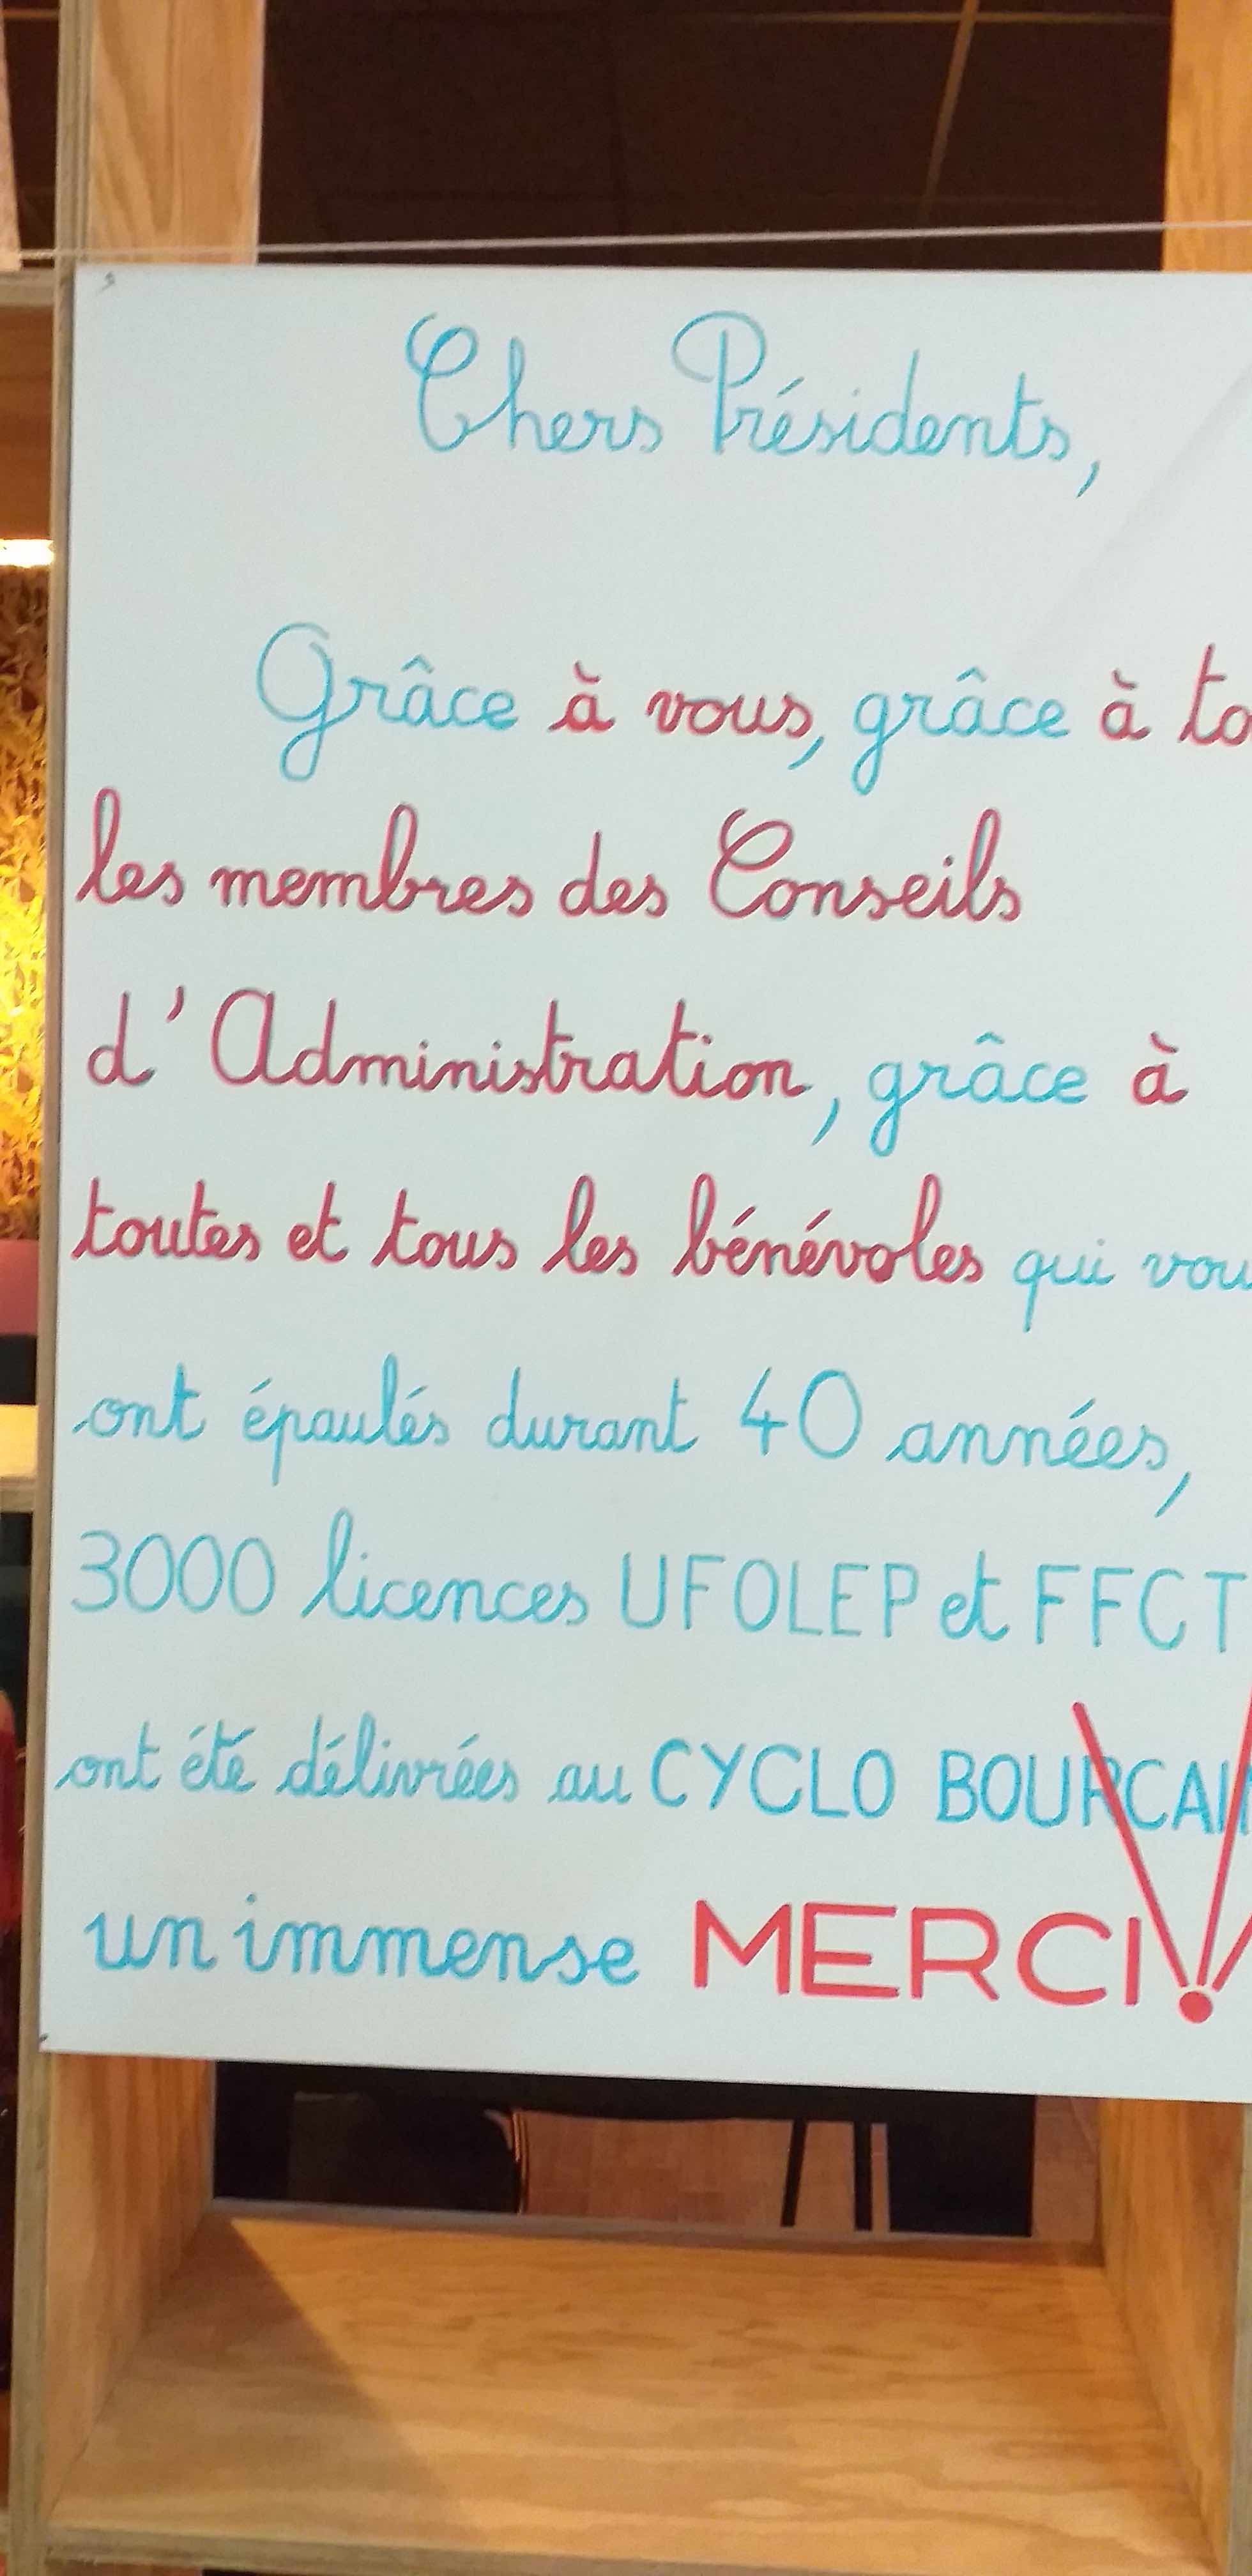 Chers Présidents,
Grâce à vous, grâce à to
les membres des Conseils
d'Administration, grâce à
toutes et tous les bénévoles qui vou
ont épaulés durant 40 années,
3000 licences UFOLEP et FFCT
ont été délivrées au CYCLO BOURCAIN
un immense MERCI!